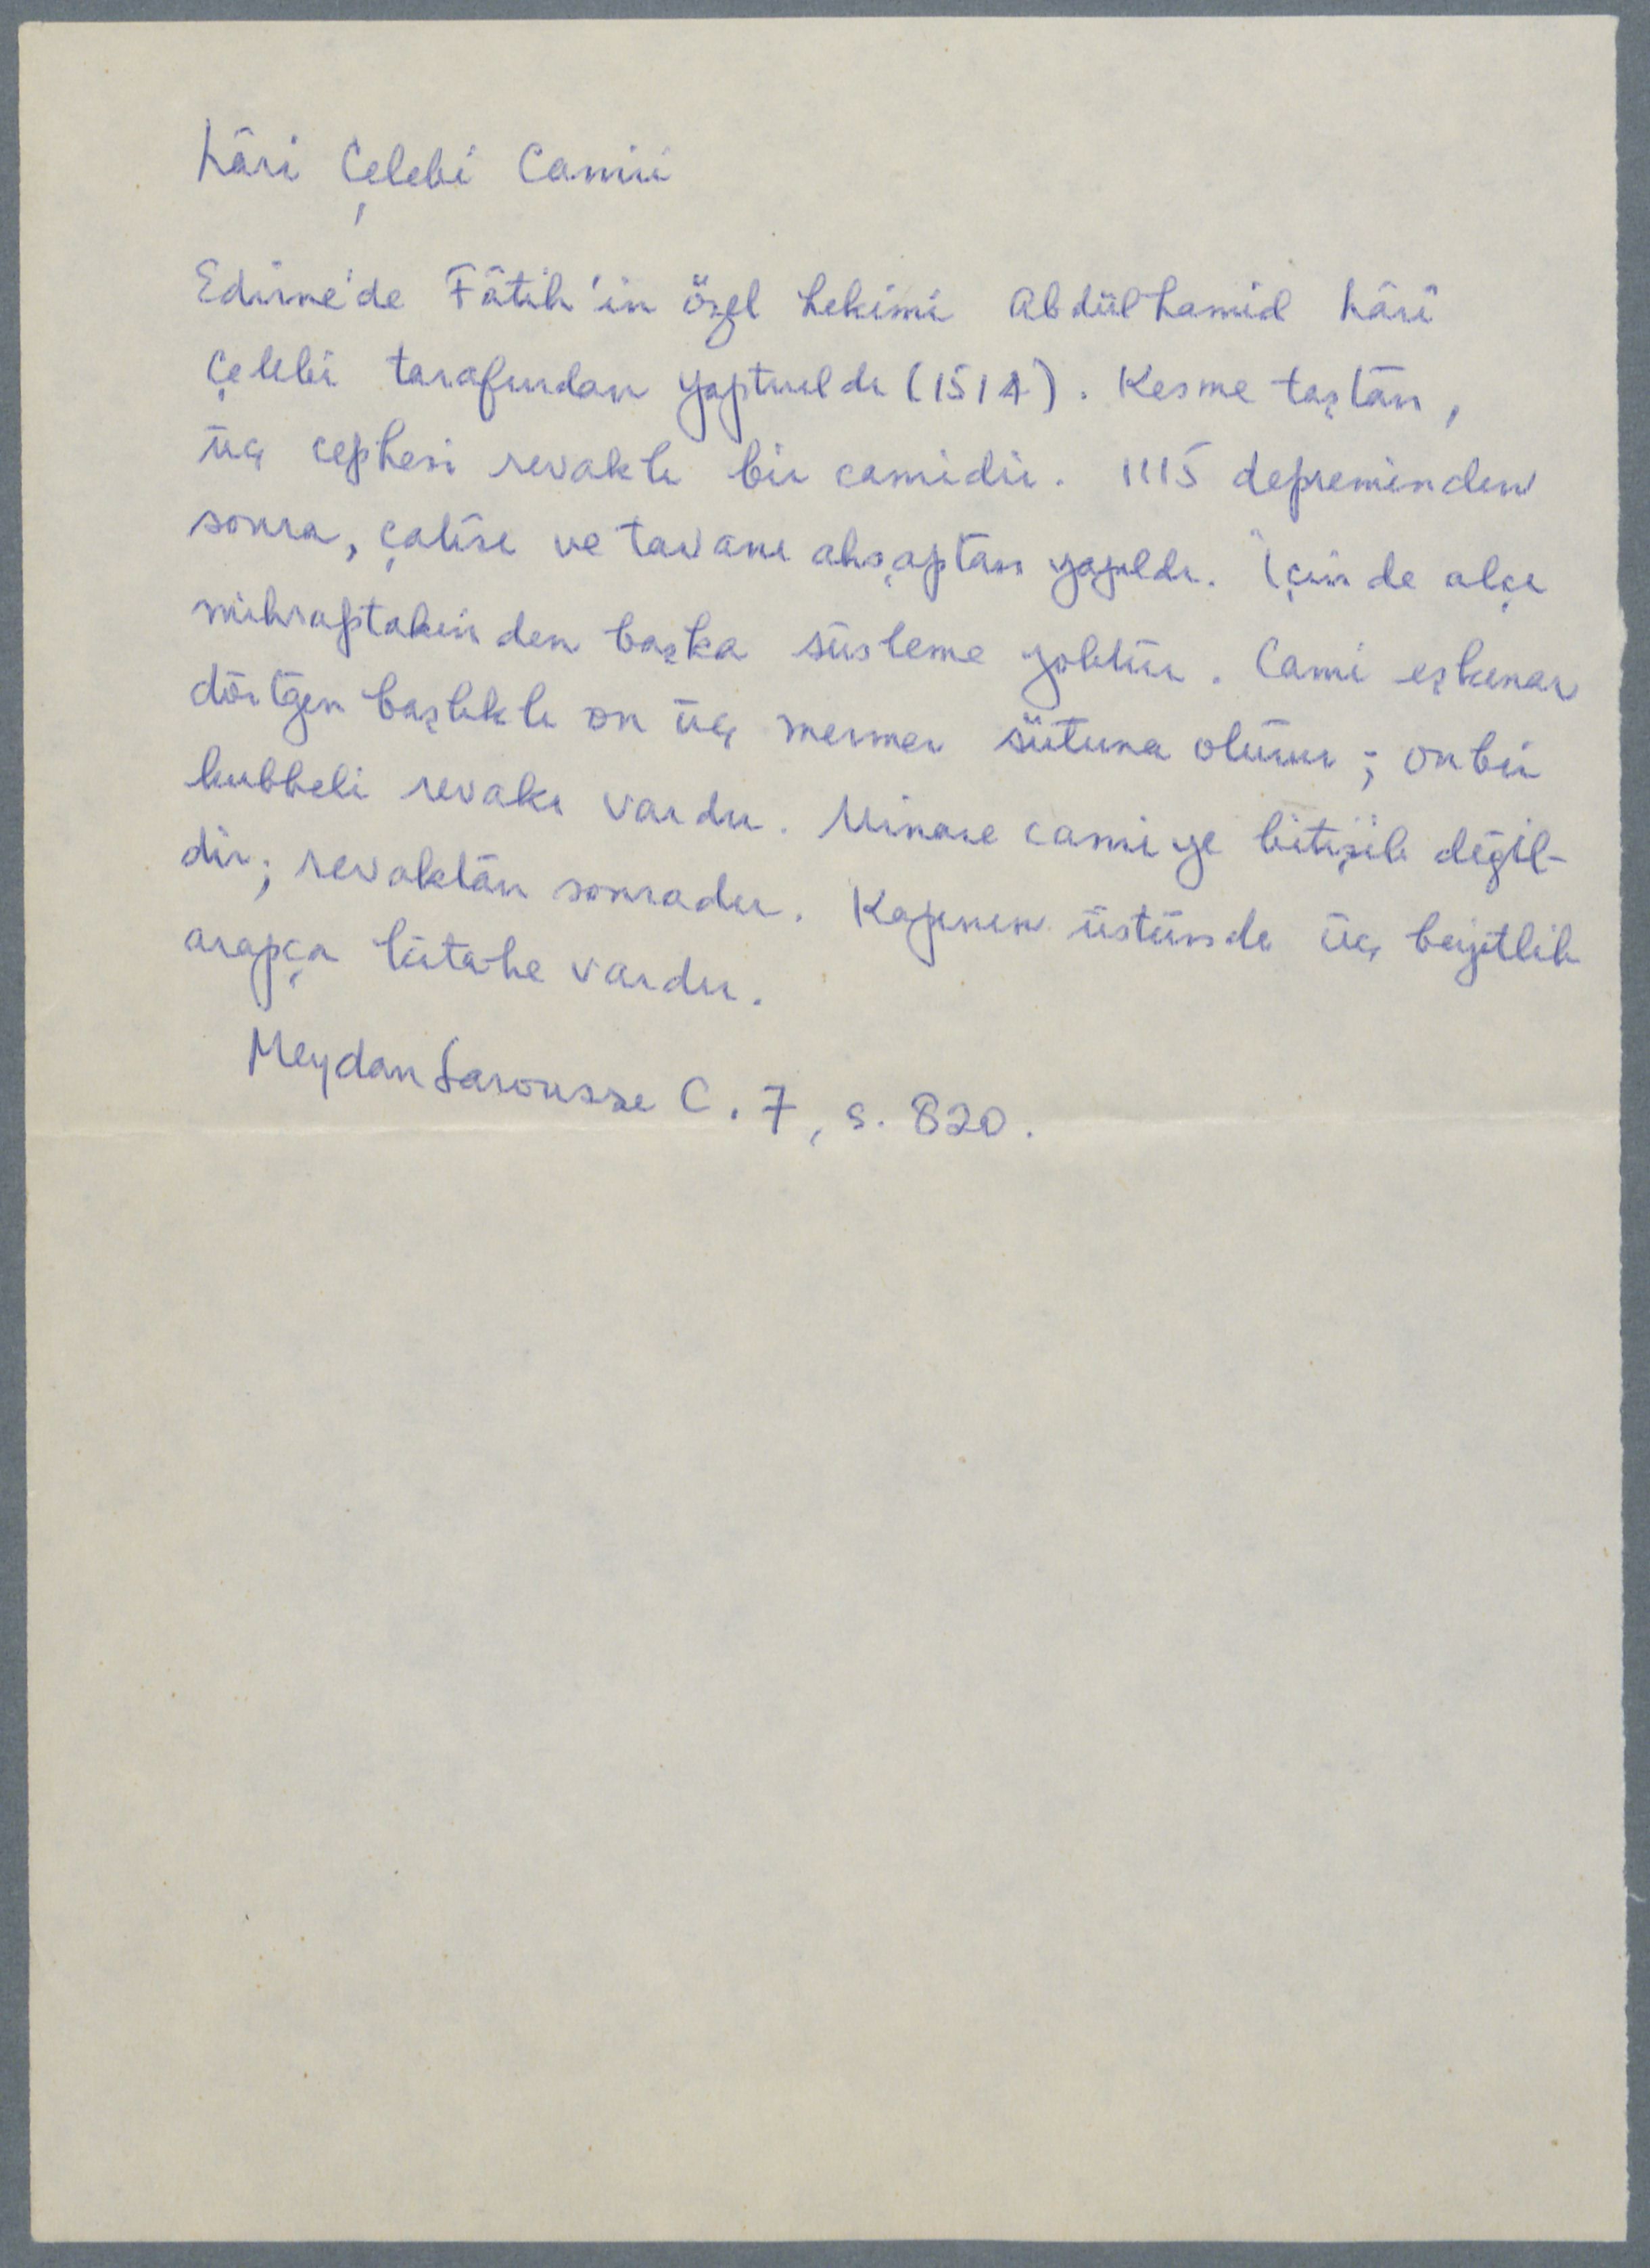 Lâri Çelebi Camii
Edirne'de Fâtih'in özel hekimi Abdülhamid Lâri
Çelebi tarafından yaptırıldı (1514). Kesme taştan,
üç cephesi revaklı bir camidir. 1115 depreminden
sonra, çatısı ve tavanı ahşaptan yapıldı. İçinde alçı
mihraptakinden başka süsleme yoktur. Cami eşkenar
dörtgen başlıklı on üç mermer sütuna oturur; on bir
kubbeli revakı vardır. Minare camiye bitişik değil-
dir; revaktan sonradır. Kapının üstünde üç beyitlik
arapça kitabe vardır.
Meydan Larousse C. 7, s. 820.